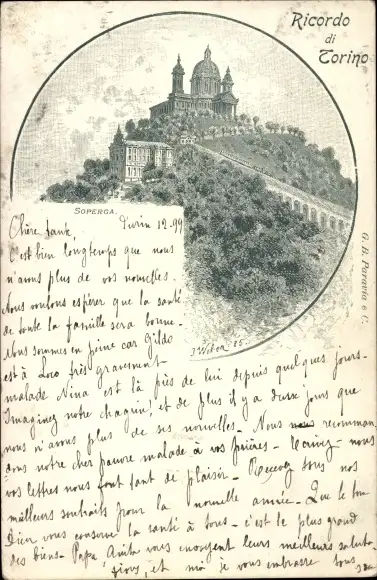 Ricordo
di
Torino
SOPERGA.
G. B. Paravia e C.
J. Weber 95.
Chère tante, Turin 12.99
C'est bien longtemps que nous
n'avons plus de vos nouvelles.
Nous voulons espérer que la santé
de toute la famille sera bonne.
Nous sommes en peine car Gildo
est à Loco très gravement
malade Nina est là près de lui depuis quelques jours.
Imaginez notre chagrin! et de plus il y a deux jours que
nous n'avons plus de ses nouvelles. Nous nous recomman
dons notre cher pauvre malade à vos prières. Ecrivez-nous
vos lettres nous font tant de plaisir. Recevez tous nos
meilleurs souhaits pour la nouvelle année. Que le bon
Dieu vous conserve la santé à tous. c'est le plus grand
des biens. Papa, Anita vous envoyent leurs meilleurs saluta-
tions, et moi je vous embrasse tous